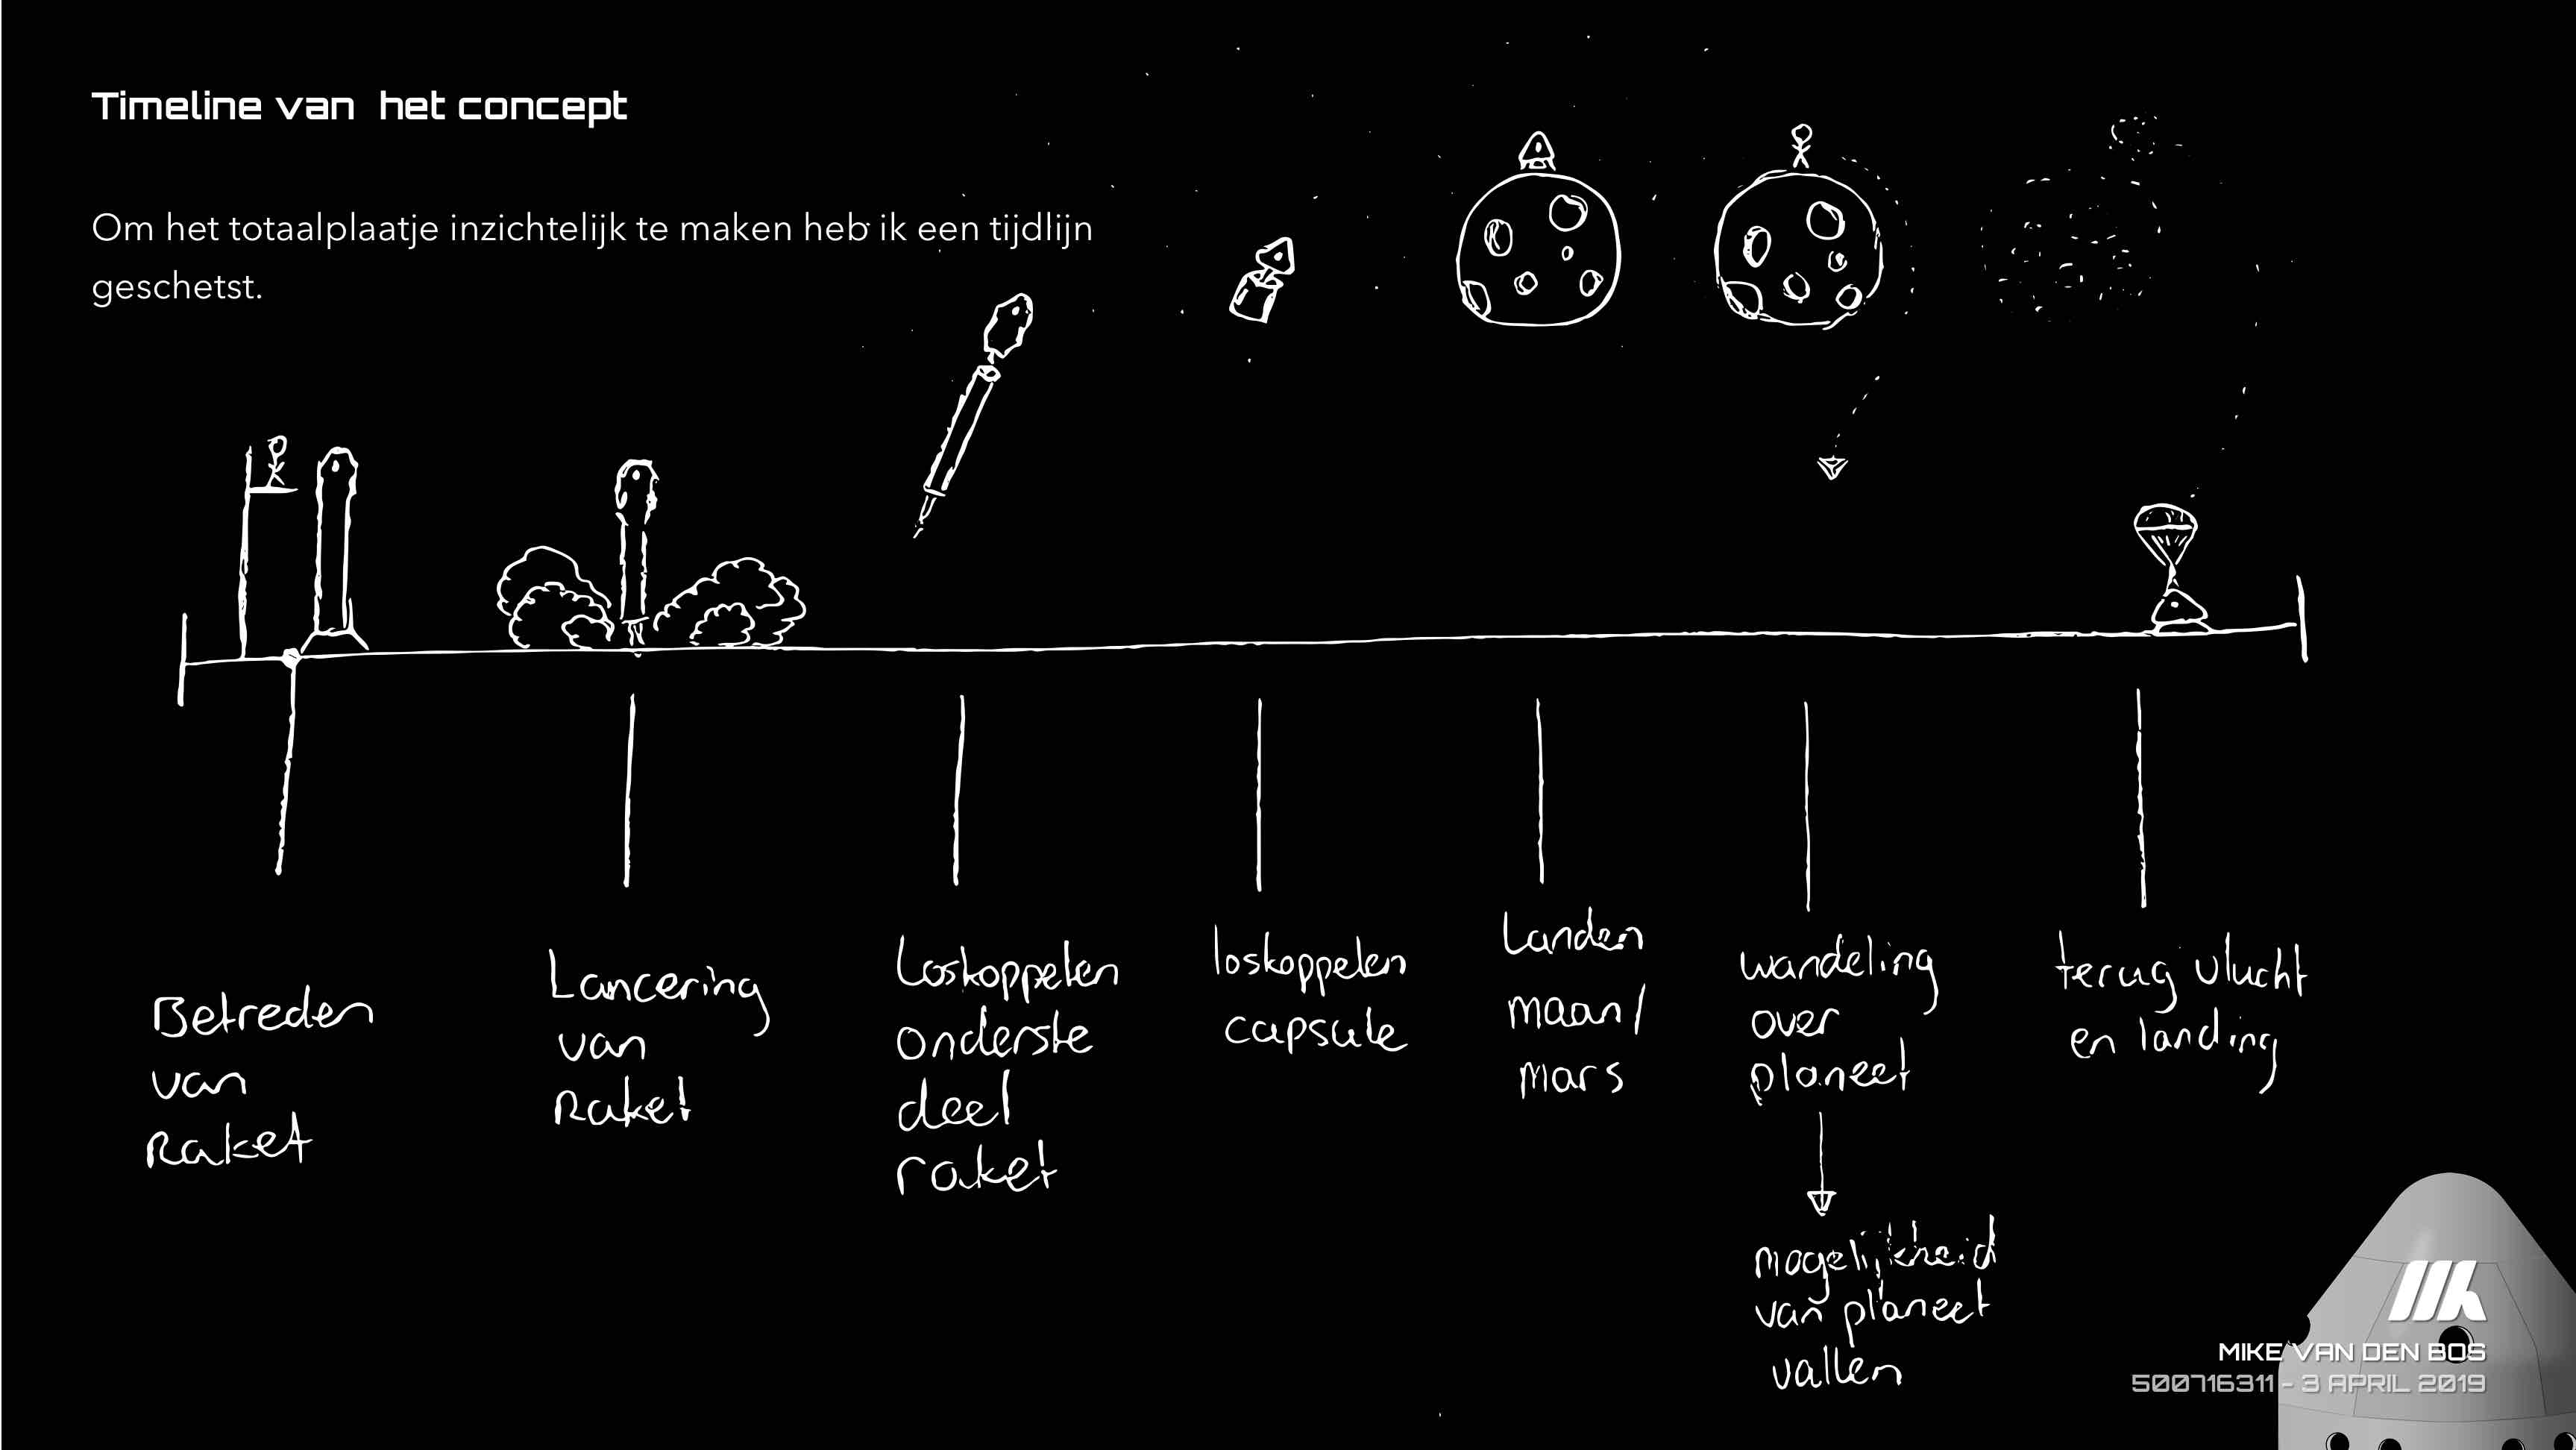 Timeline van het concept
Om het totaalplaatje inzichtelijk te maken heb ik een tijdlijn
geschetst.
Betreden
van
Raket
Lancering
van
Raket
Loskoppelen
onderste
deel
raket
loskoppelen
capsule
Landen
maan/
mars
wandeling
over
planeet
mogelijkheid
van planeet
vallen
terug vlucht
en landing
MIKE VAN DEN BOS
500716311 - 3 APRIL 2019